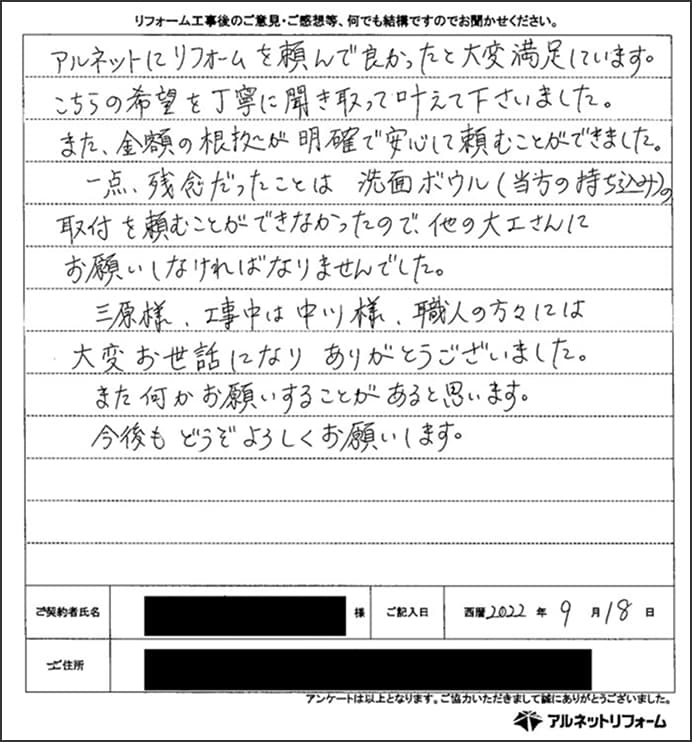 リフォーム工事後のご意見・ご感想等、何でも結構ですのでお聞かせください。
アルネットにリフォームを頼んで良かったと大変満足しています。
こちらの希望を丁寧に聞き取って叶えて下さいました。
また、金額の根拠が明確で安心して頼むことができました。
一点、残念だったことは 洗面ボウル(当方の持ち込み)の
取付を頼むことができなかったので、他の大工さんに
お願いしなければなりませんでした。
三原様、工事中は中川様、職人の方々には
大変お世話になり ありがとうございました。
また何かお願いすることがあると思います。
今後もどうぞよろしくお願いします。
ご契約者氏名 様 ご記入日 西暦2022年9月18日
ご住所
アンケートは以上となります。ご協力いただきまして誠にありがとうございました。
アルネットリフォーム